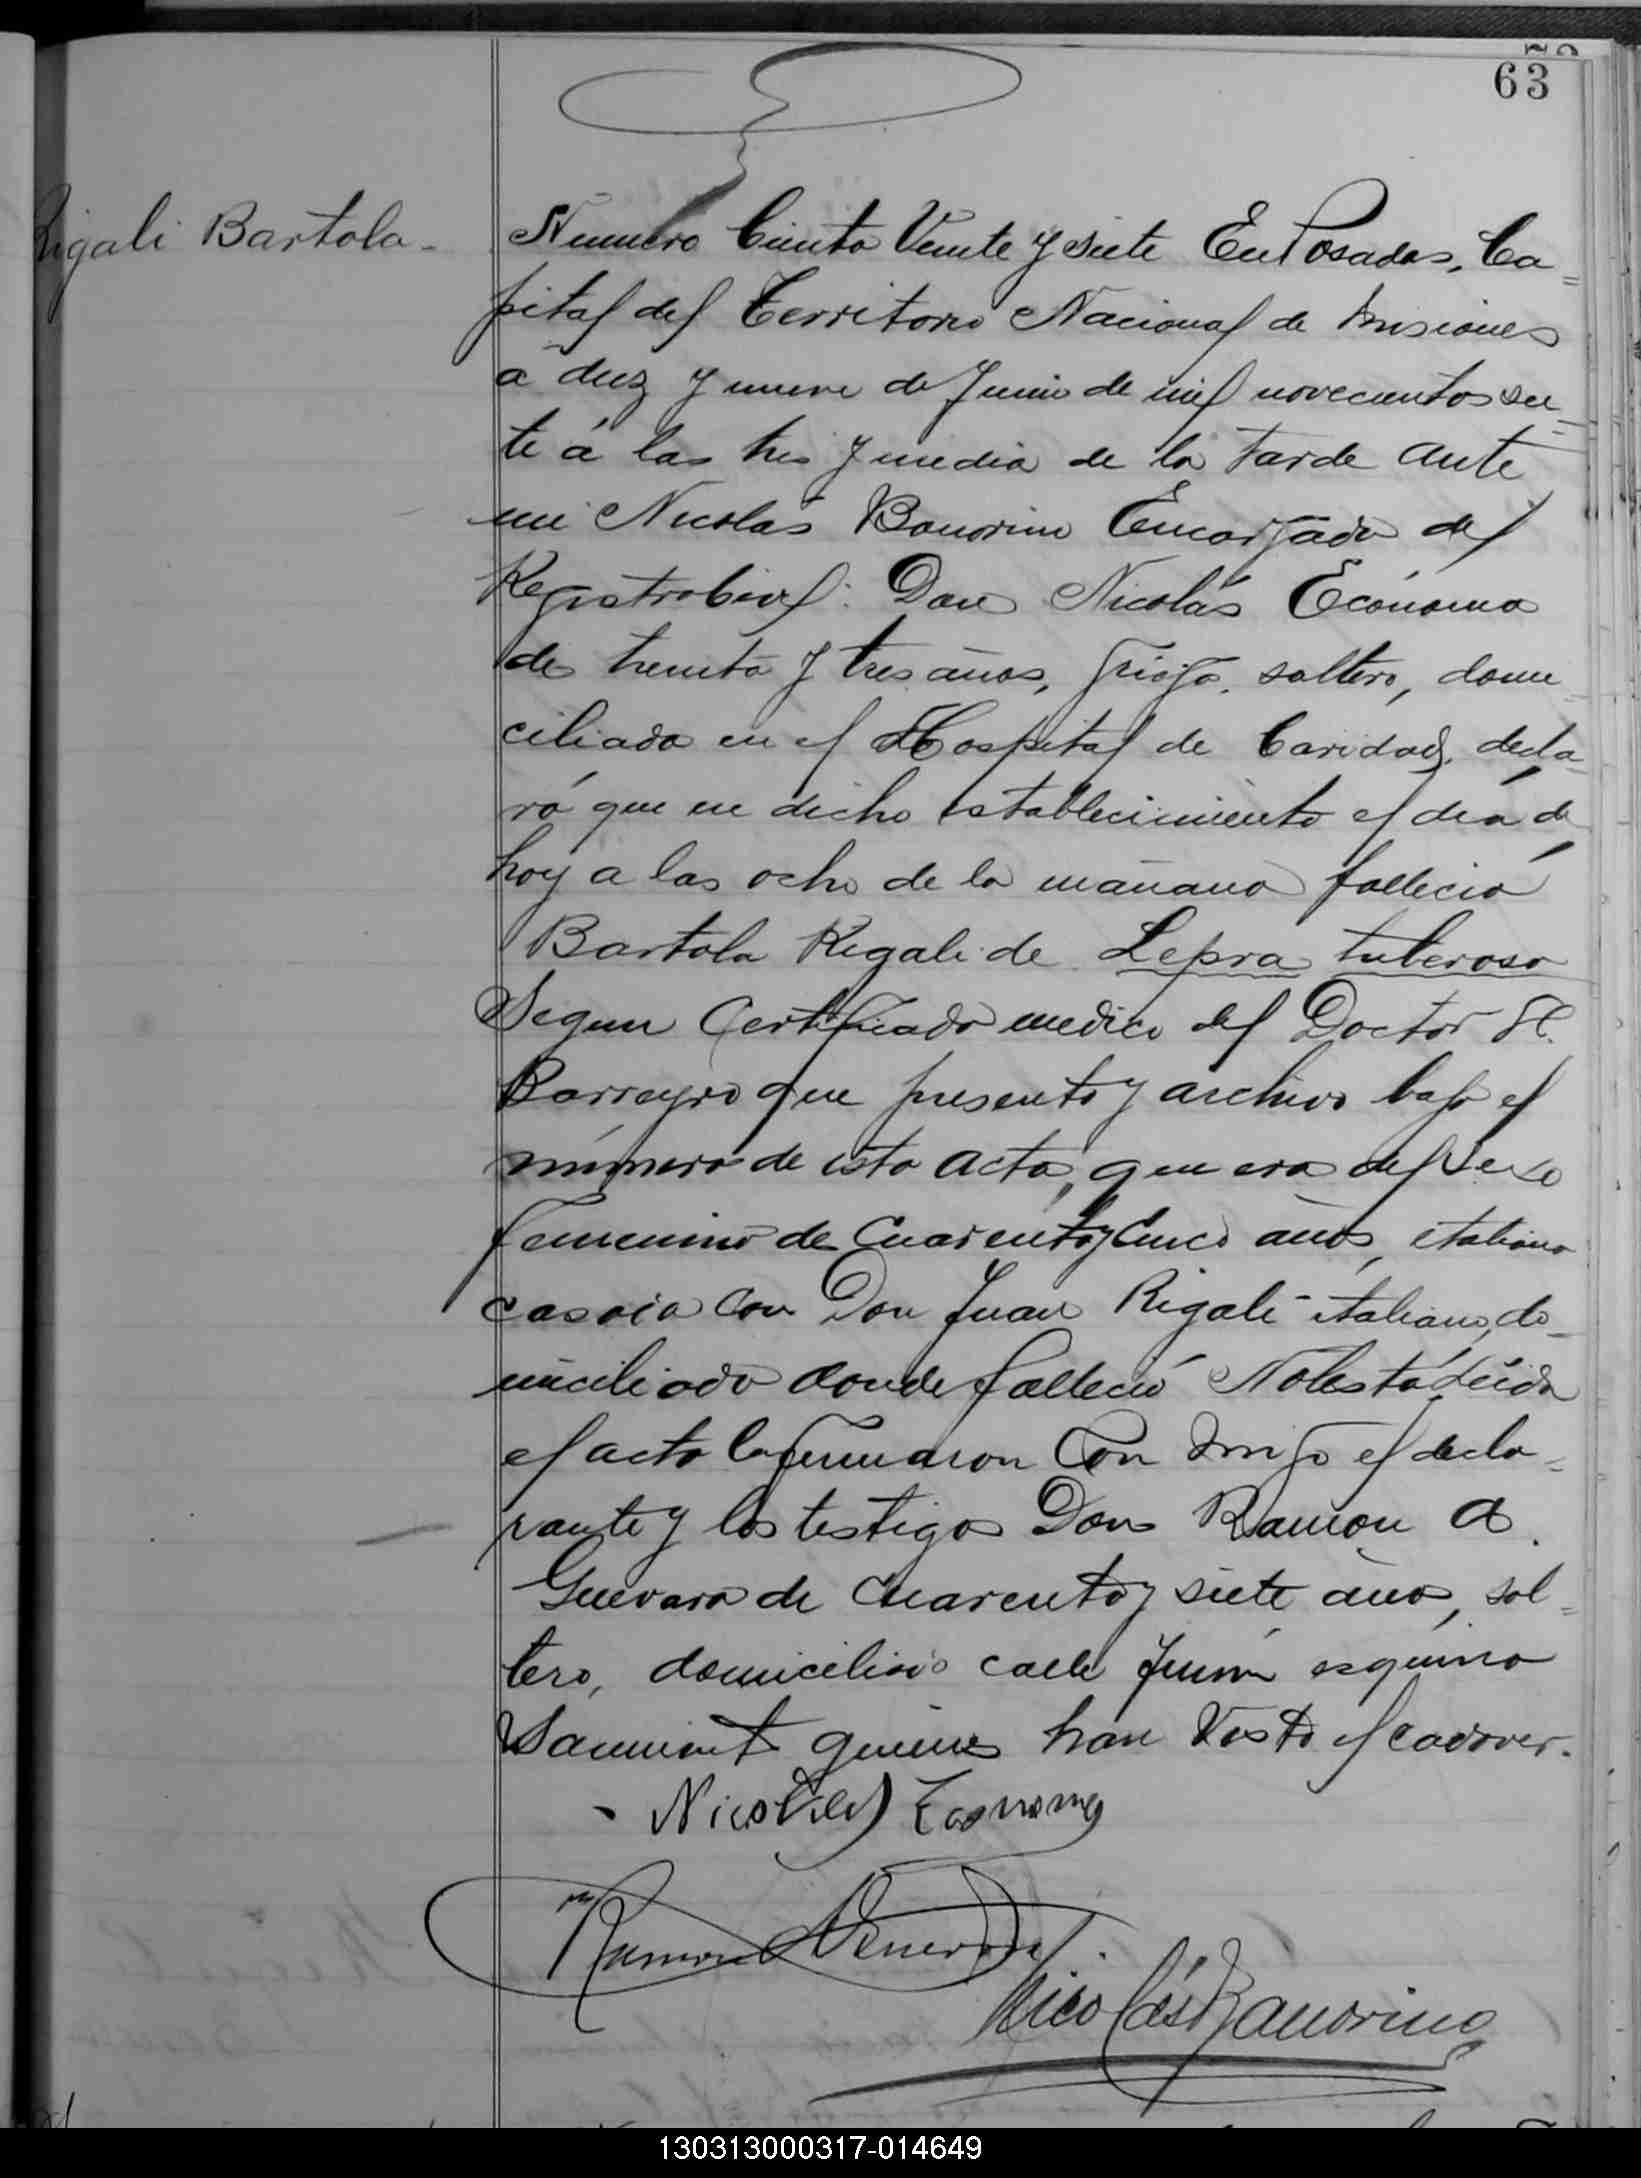 63
Rigali Bartola -
Número Ciento Veinte y siete En Posadas, Ca=
pital del Territorio Nacional de Misiones
a diez y nueve de Junio de mil novecientos sie=
te á las tres y media de la tarde ante
mi Nicolás Bonorino Encargado del
Registro Civil: Don Nicolás Ecónomo
de treinta y tres años, griego, soltero, domi=
ciliado en el Hospital de Caridad, decla=
ró que en dicho establecimiento el dia de
hoy a las ocho de la mañana falleció
Bartola Rigali de Lepra tuberosa
Segun Certificado medico del Doctor H.
Barreyro que presento y archivo bajo el
número de esta acta, que era del Sexo
femenino de Cuarenta y Cinco años, italiana
casada Con Don Juan Rigali italiano, do=
miciliado donde falleció Leida
el acta la firmaron Con migo el decla=
rante y los testigos Don Ramon A.
Guevara de Cuarenta y siete años, sol=
tero, domiciliado calle Junin esquina
Sarmiento quienes han Visto el cadaver.
Nicolas Economo
Ramon A Guevara
Nicolás Bonorino
130313000317-014649